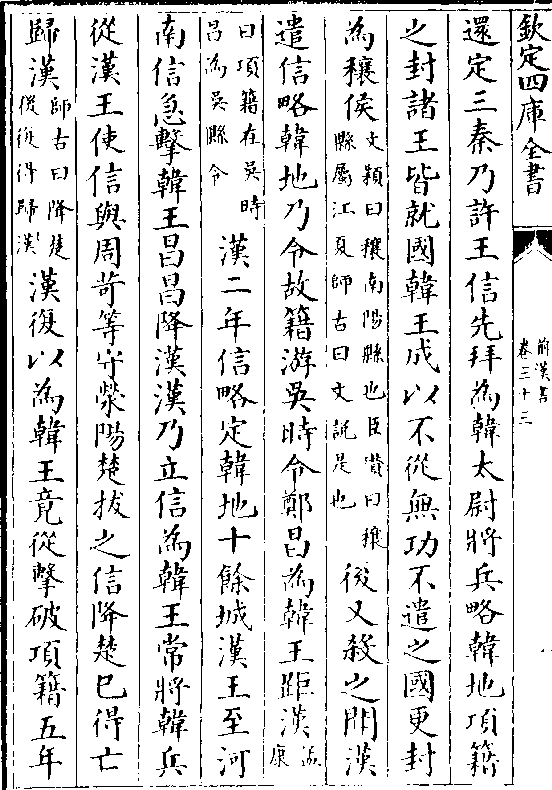 欽定四庫全書
前漢書
卷三十三
還定三秦乃許王信先拜為韓太尉將兵略韓地項籍
之封諸王皆就國韓王成以不從無功不遣之國更封
為穰侯文穎曰穰南陽縣也臣瓚曰穰
縣屬江夏師古曰文說是也後又殺之聞漢
遣信略韓地乃令故籍游吳時令鄭昌為韓王距漢孟康
曰項籍在吳時
昌為吳縣令漢二年信略定韓地十餘城漢王至河
南信急擊韓王昌昌降漢漢乃立信為韓王常將韓兵
從漢王使信與周苛等守滎陽楚拔之信降楚巳得亡
歸漢師古曰降楚
後復得歸漢漢復以為韓王竟從擊破項籍五年